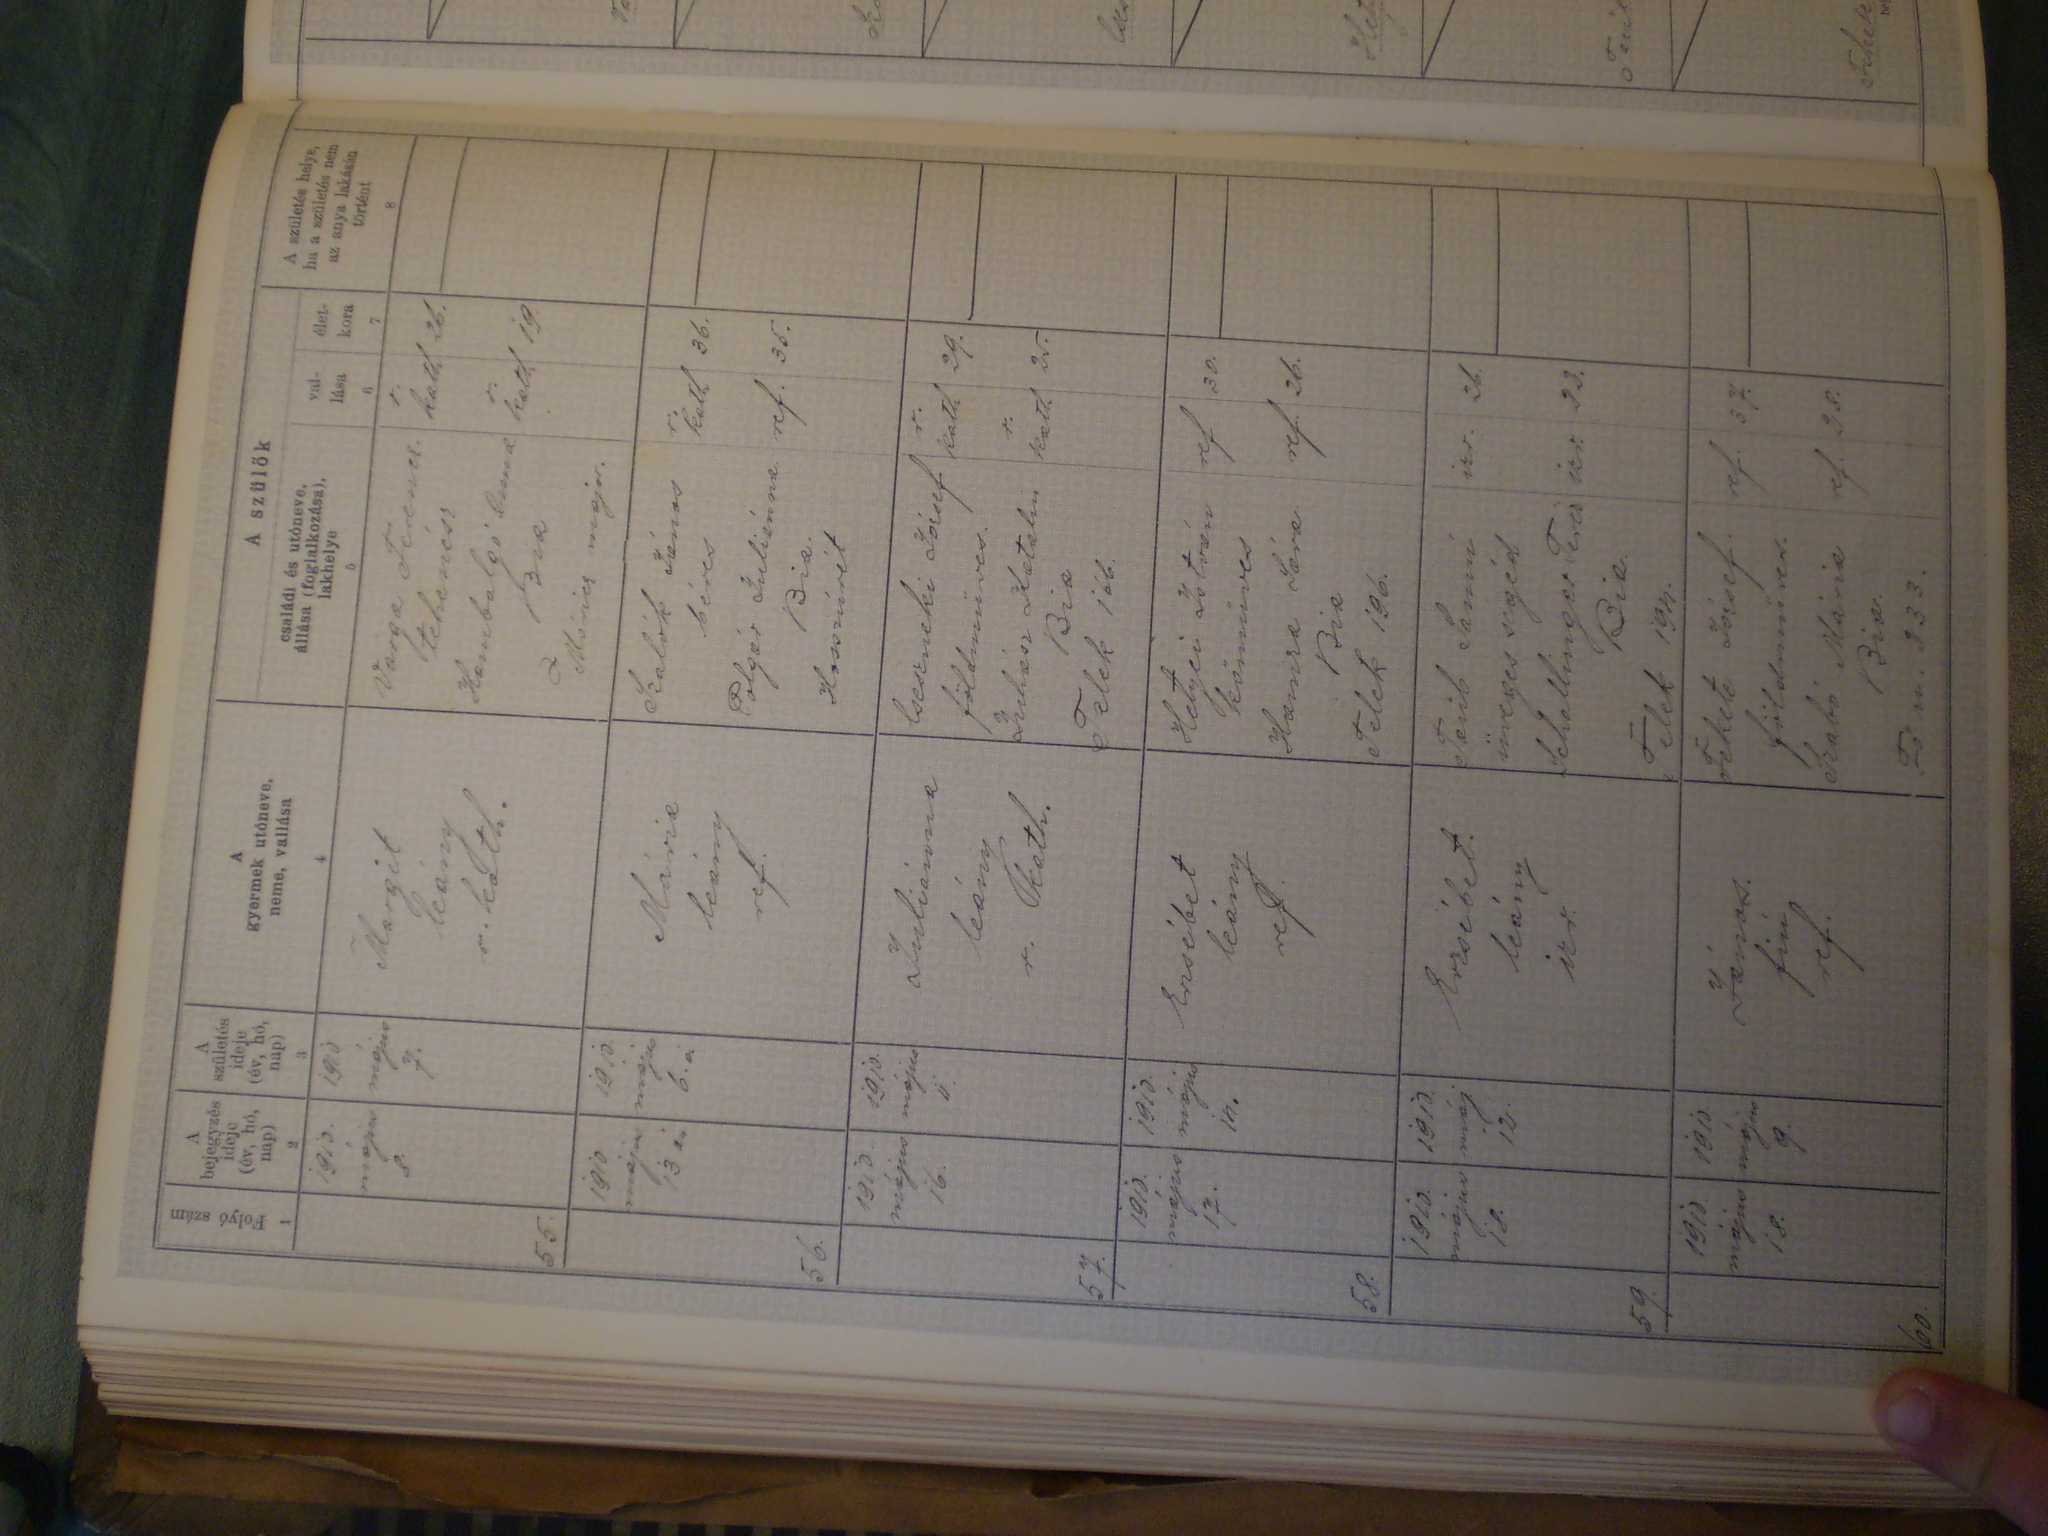 Folyó szám
A
bejegyzés
ideje
(év, hó,
nap)
A
születés
ideje
(év, hó,
nap)
A
gyermek utóneve,
neme, vallása
A szülők
családi és utóneve,
állása (foglalkozása),
lakhelye
val-
lása
élet-
kora
A születés helye,
ha a születés nem
az anya lakásán
történt
1
2
3
4
5
6
7
8
55.
1910.
május
8.
1910
május
7.
Margit
leány
r. kath.
Varga Ferencz
tehenész
Bia
major.
r.
kath. 26.
r.
kath 19.
56.
1910
május
13 án
1910.
május
6. á
Mária
leány
ref.
Szalók János
béres
Polgár Juliánna
Bia.
r.
kath 36.
ref. 35.
57.
1910.
május
16.
1910.
május
11.
Juliánna
leány
r. kath.
Cserneki József
földmüves.
Juhász Katalin
Bia
Telek 166.
r.
kath 29.
r.
kath 25.
58.
1910.
május
17.
1910.
május
14.
Erzsébet
leány
ref.
Helyei István
kőmüves
Hamza Sára
Bia
Telek 196.
ref 30.
ref. 26.
59.
1910.
május
18.
1910.
máj
12.
Erzsébet.
leány
izr.
üveges segéd
Schallinger Teréz
Bia.
Telek
izr. 26.
izr. 22.
60.
1910
május
18.
1910.
május
9.
János.
fiu
ref.
Fekete József.
földmüves.
Szabó Mária
Bia.
233.
ref. 37.
ref. 28.